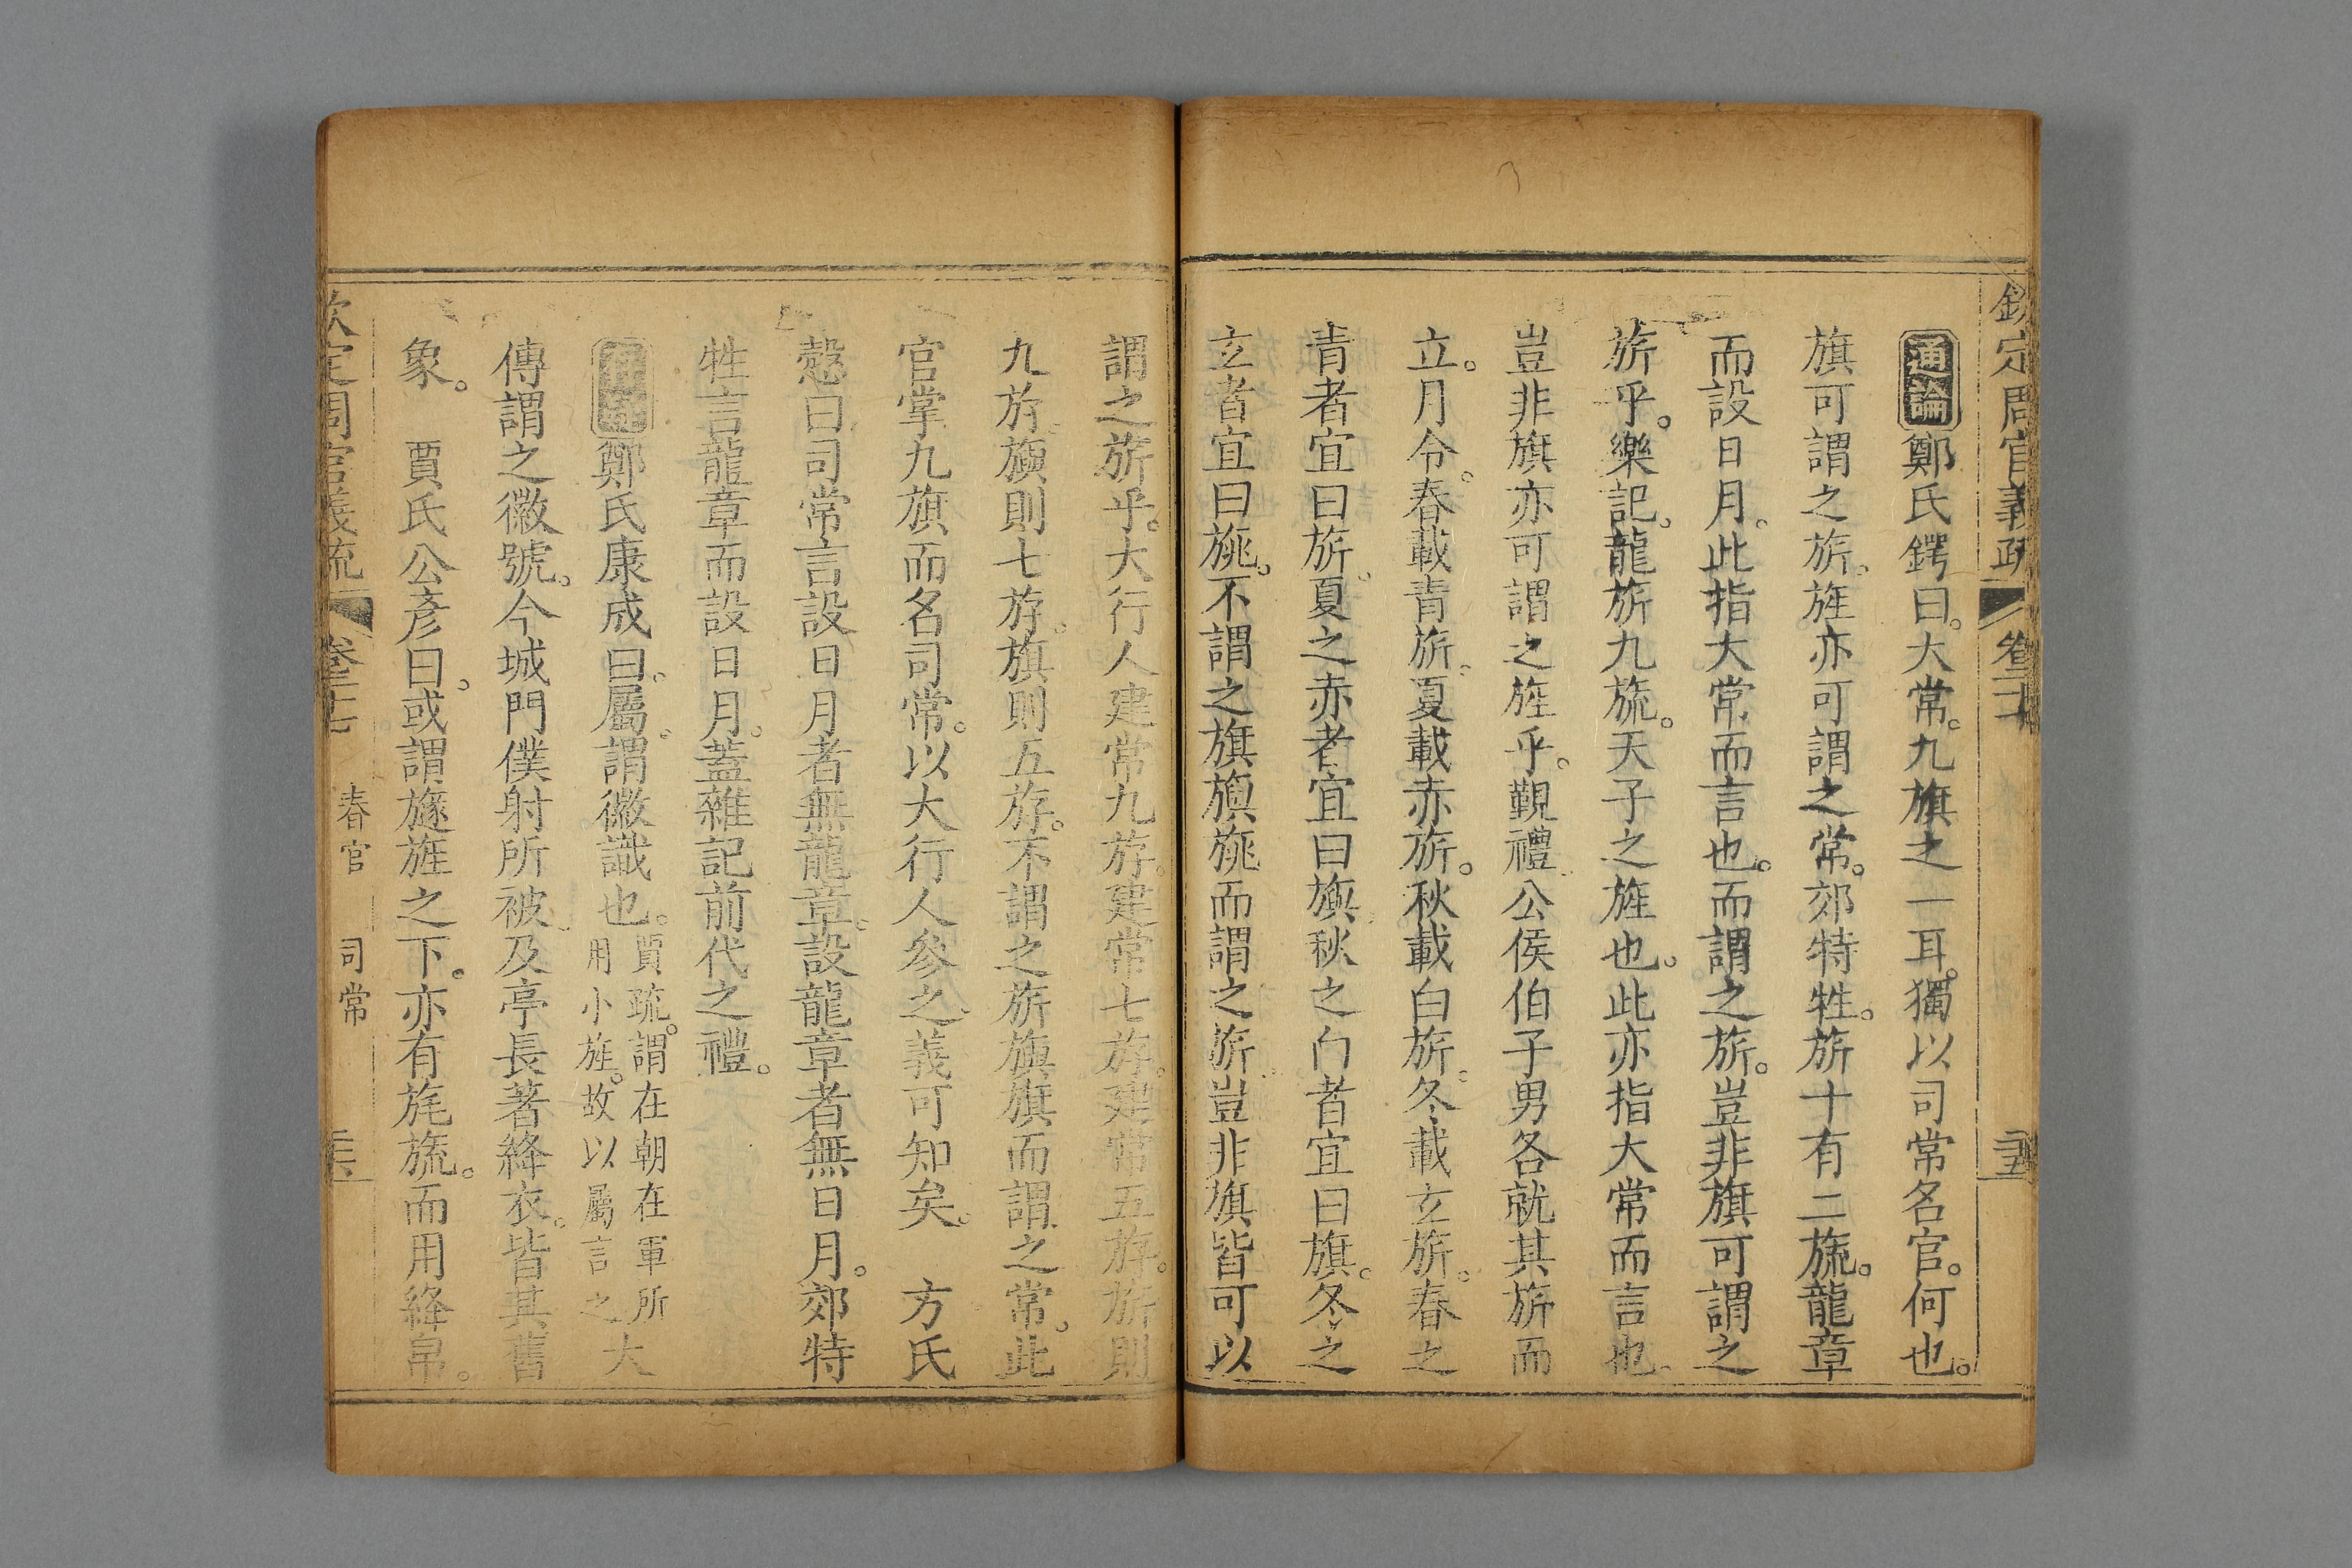 欽定周官義疏 卷二十七 三五
通論鄭氏鍔曰。大常。九旗之一耳。獨以司常名官。何也。
旗可謂之旂。旌亦可謂之常。郊特牲。旂十有二旒。龍章
而設日月。此指大常而言也。而謂之旂。豈非旗可謂之
旂乎。樂記。龍旂九旒。天子之旌也。此亦指大常而言也。
豈非旗亦可謂之旌乎。覲禮。公侯伯子男各就其旂而
立。月令。春載青旂。夏載赤旂。秋載白旂。冬載玄旂。春之
青者宜曰旂。夏之赤者宜曰旟。秋之白者宜曰旗。冬之
玄者宜曰旐。不謂之旗旟旐而謂之旂。豈非旗皆可以
謂之旂乎。大行人建常九斿。建常七斿。建常五斿。旂則
九斿。旟則七斿。旗則五斿。不謂之旂旟旗而謂之常。此
官掌九旗而名司常。以大行人參之。義可知矣。 方氏
慤曰司常言設日月者無龍章。設龍章者無日月。郊特
牲言龍章而設日月。蓋雜記前代之禮。
鄭氏康成曰。屬。謂徽識也。賈疏。謂在朝在軍所用小旌。故以屬言之。大
傳謂之徽號。今城門僕射所被。及亭長著絳衣。皆其舊
象。 賈氏公彥曰。或謂旞旌之下。亦有旄旒。而用絳帛。
欽定周官義疏 卷二十七 春官 司常